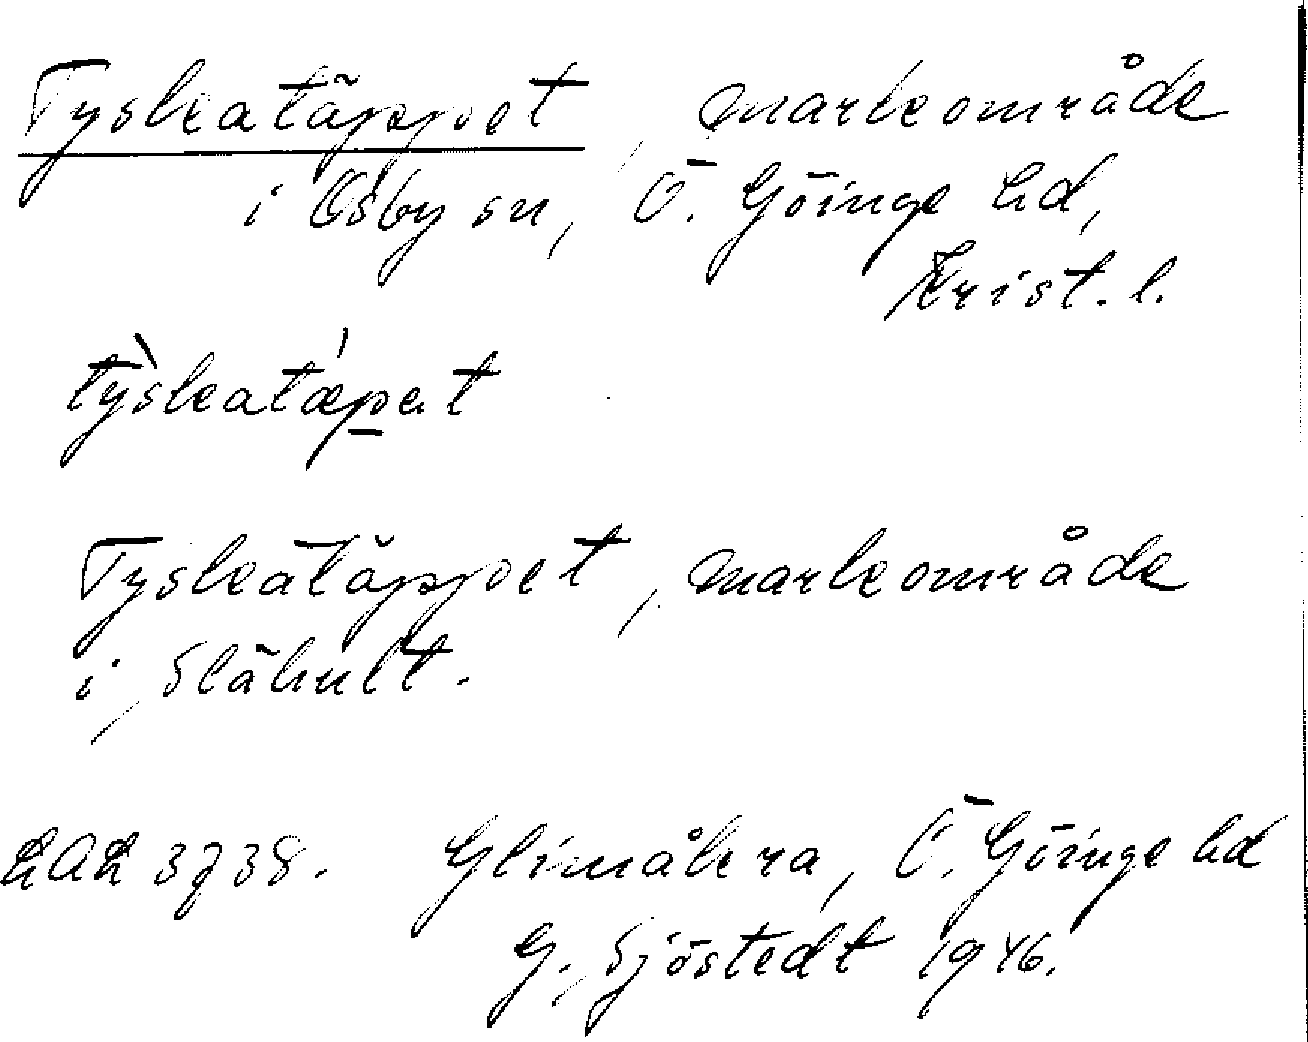 Tyskatäppet, markområde
i Osby sn, Ö. Göinge hd,
Krist. l.
tỳskatǽpat
Tyskatäppet, markområde
i Slähult.
LAL 3738. Glimåkra, Ö. Göinge hd
G. Sjöstedt 1946.